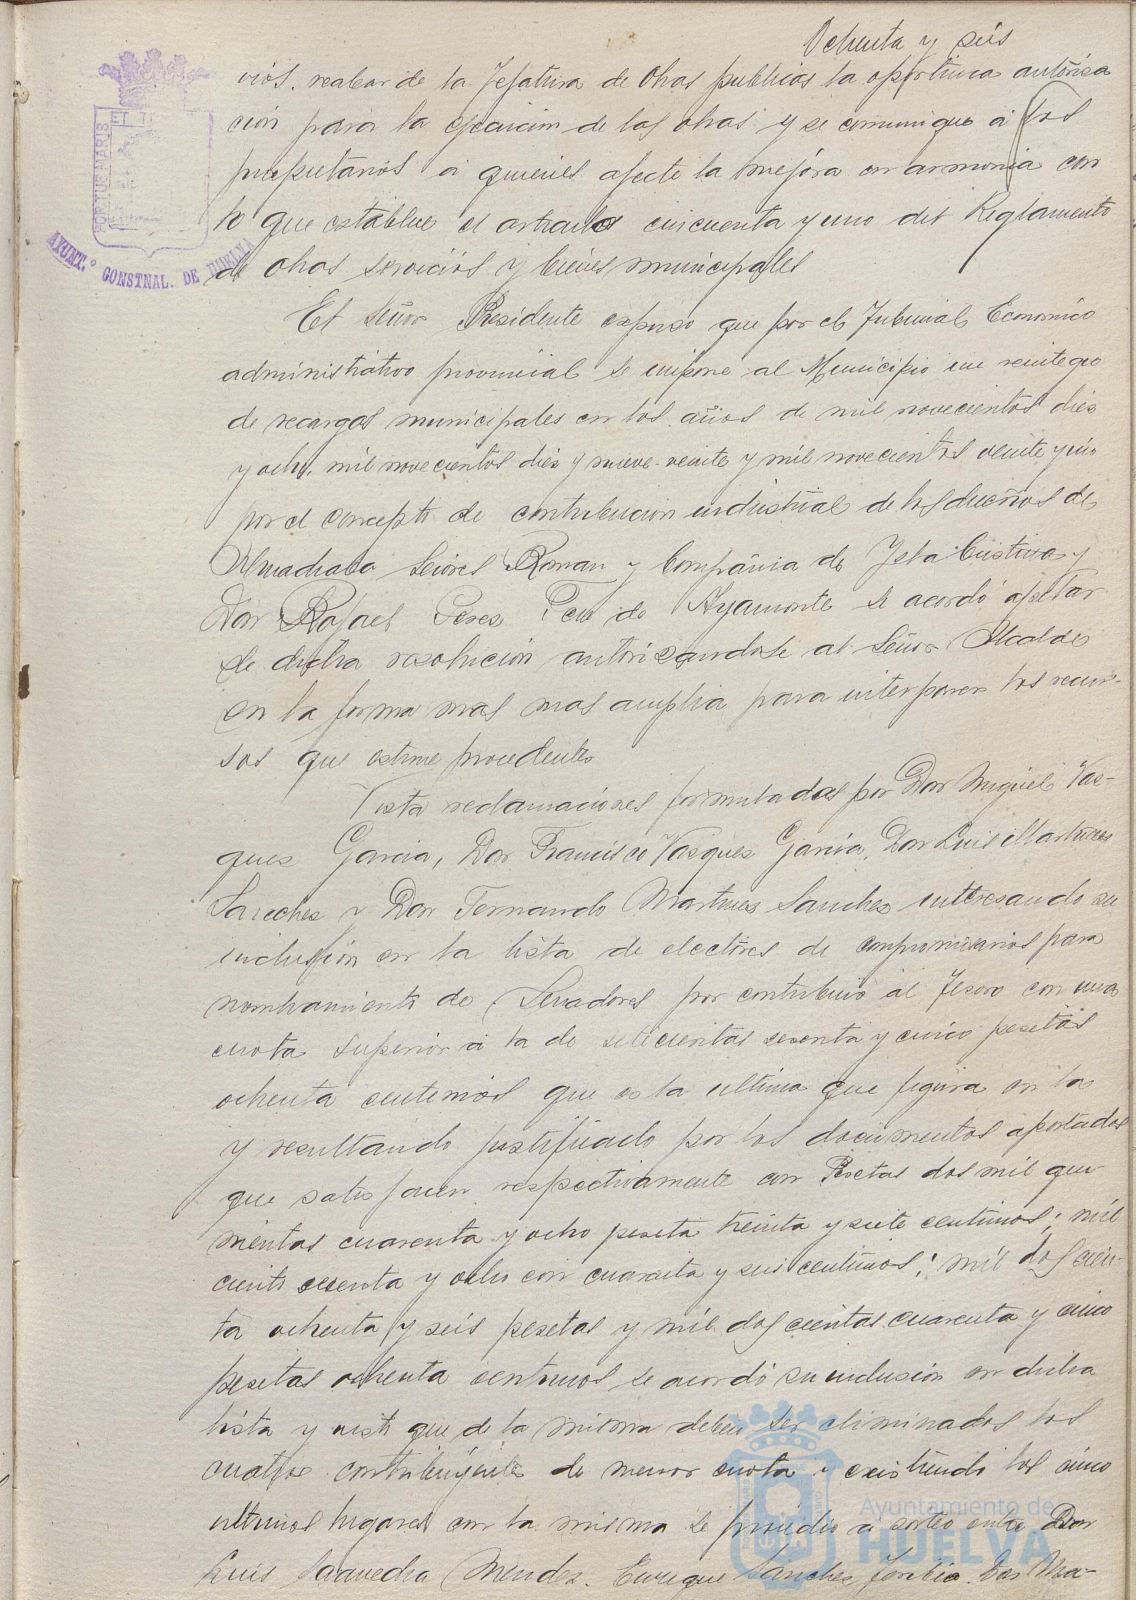 Ochenta y seis
PORTUS MARIS
ET T
AYUNT.º CONSTNAL. DE HUELVA
vios, recabar de la Jefatura de Obras publicas la oportuna autoriza
ción para la ejecucion de las obras y se comunique á los
propietarios á quienes afecte la mejora en armonia con
lo que establece el articulo cincuenta y uno del Reglamento
de obras servicios y bienes municipales
El Señor Presidente expuso que por el Tribunal Económico
administrativo provincial se impone al Municipio un reintegro
de recargos municipales en los años de mil novecientos diez
y ocho, mil novecientos diez y nueve-veinte y mil novecientos veinte y uno
por el concepto de contribución industrial de los dueños de
Almadraba Señores Roman y Compañia de Isla Cristina y
Don Rafael Perez Feu de Ayamonte se acordó apelar
de dicha resolución autorizandose al Señor Alcalde
en la forma mas mas amplia para interponer los recur-
sos que estime procedentes
Vista reclamaciones formuladas por Don Miguel Vas-
ques Garcia, Don Francisco Vasques Garcia, Don Luis Martines
Sanches y Don Fernando Martines Sanches interesando su
inclusión en la lista de electores de compromisarios para
nombramiento de Senadores por contribuir al Tesoro con una
cuota superior á la de setecientas sesenta y cinco pesetas
ochenta centimos que es la ultima que figura en la
y resultando justificado por los documentos aportados
que satisfacen respectivamente con Pesetas dos mil qui
nientas cuarenta y ocho peseta treinta y siete centimos; mil
ciento sesenta y ocho con cuarenta y seis centimos; mil doscien-
ta ochenta y seis pesetas y mil doscientas cuarenta y cinco
pesetas ochenta centimos se acordó su inclusión en dicha
lista y visto que de la misma deben ser eliminados los
cuatro contribuyentes de menor cuota y existiendo los cinco
ultimos lugares con la misma se procedió a sorteo entre Don
Luis Saavedra Mendez. Enrique Sanches Toribio. Don Ma-
Ayuntamiento de
HUELVA